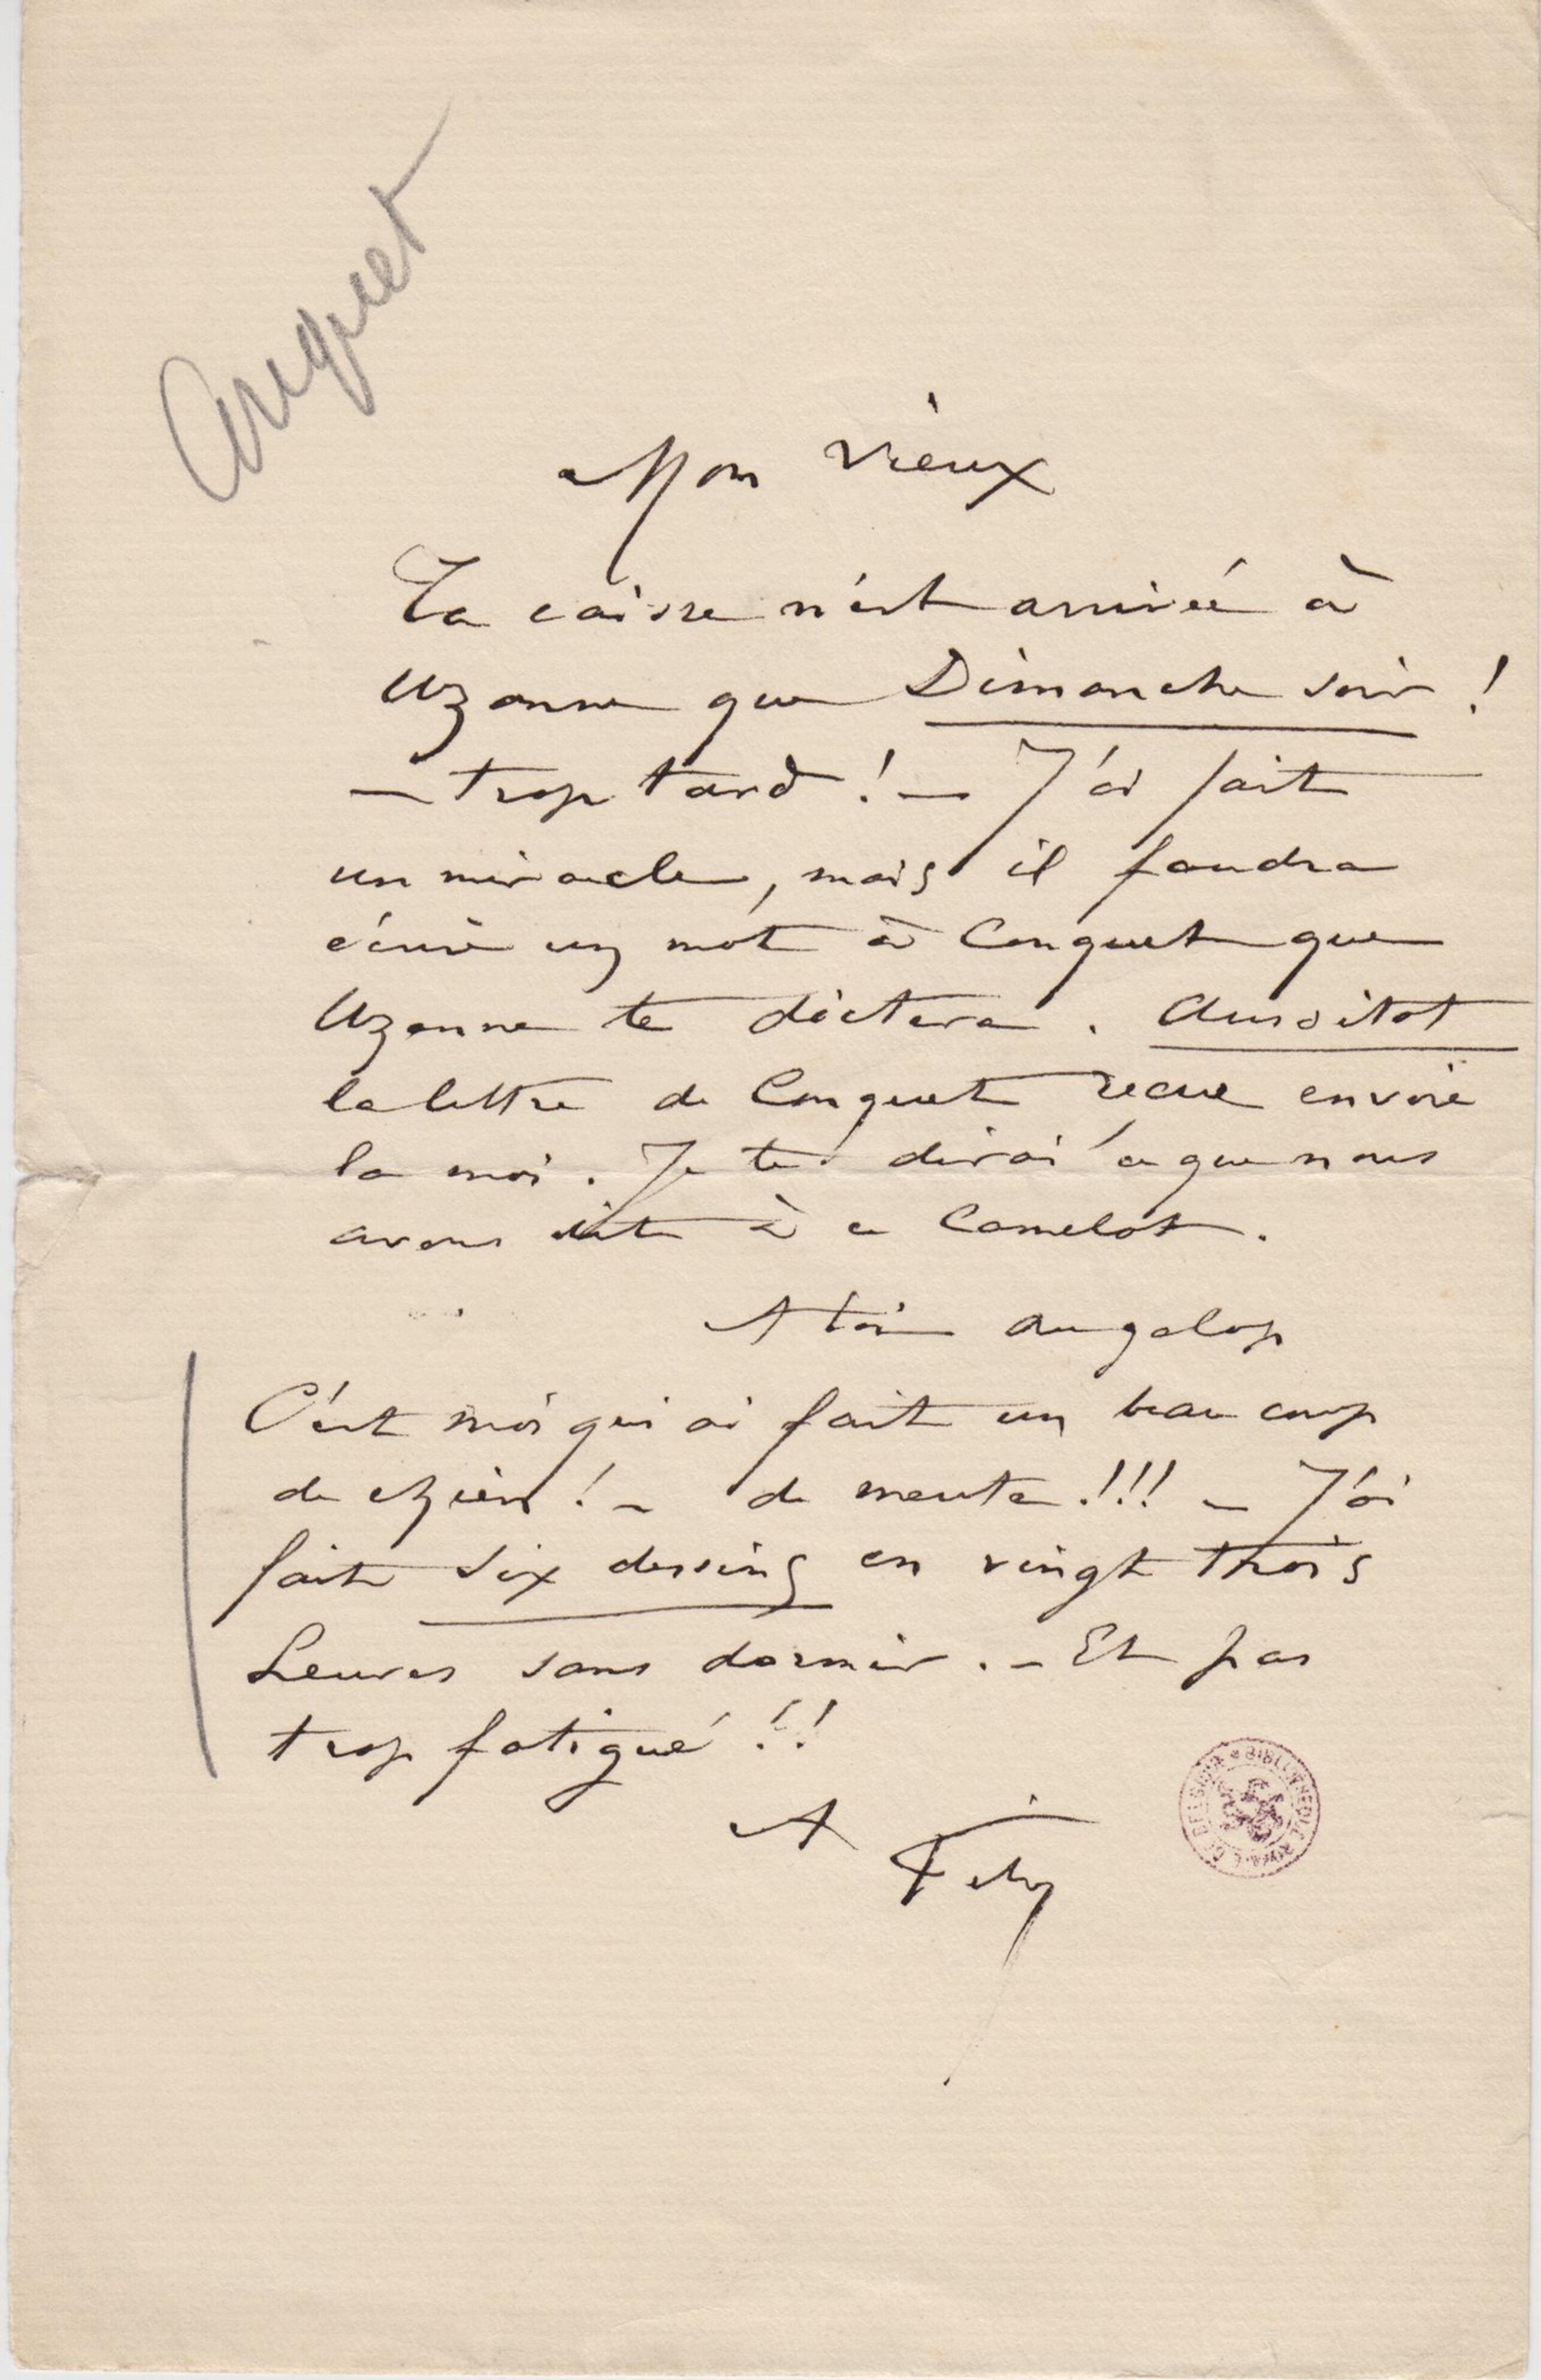 Conquet
Mon vieux
Ta caisse n'est arrivée à
Uzanne que Dimanche soir !
– trop tard ! – J'ai fait
un miracle, mais il faudra
écrire un mot à Conquet que
Uzanne te dictera . Aussitot
la lettre de Conquet recue envoie
la moi . Je te dirai ce que nous
avons dit à ce Camelot .
A toi au galop
C'est moi qui ai fait un beau coup
de chien ! – de meute !!! – J'ai
fait six dessins en vingt trois
heures sans dormir . – Et pas
trop fatigué !!
A toi
Fély